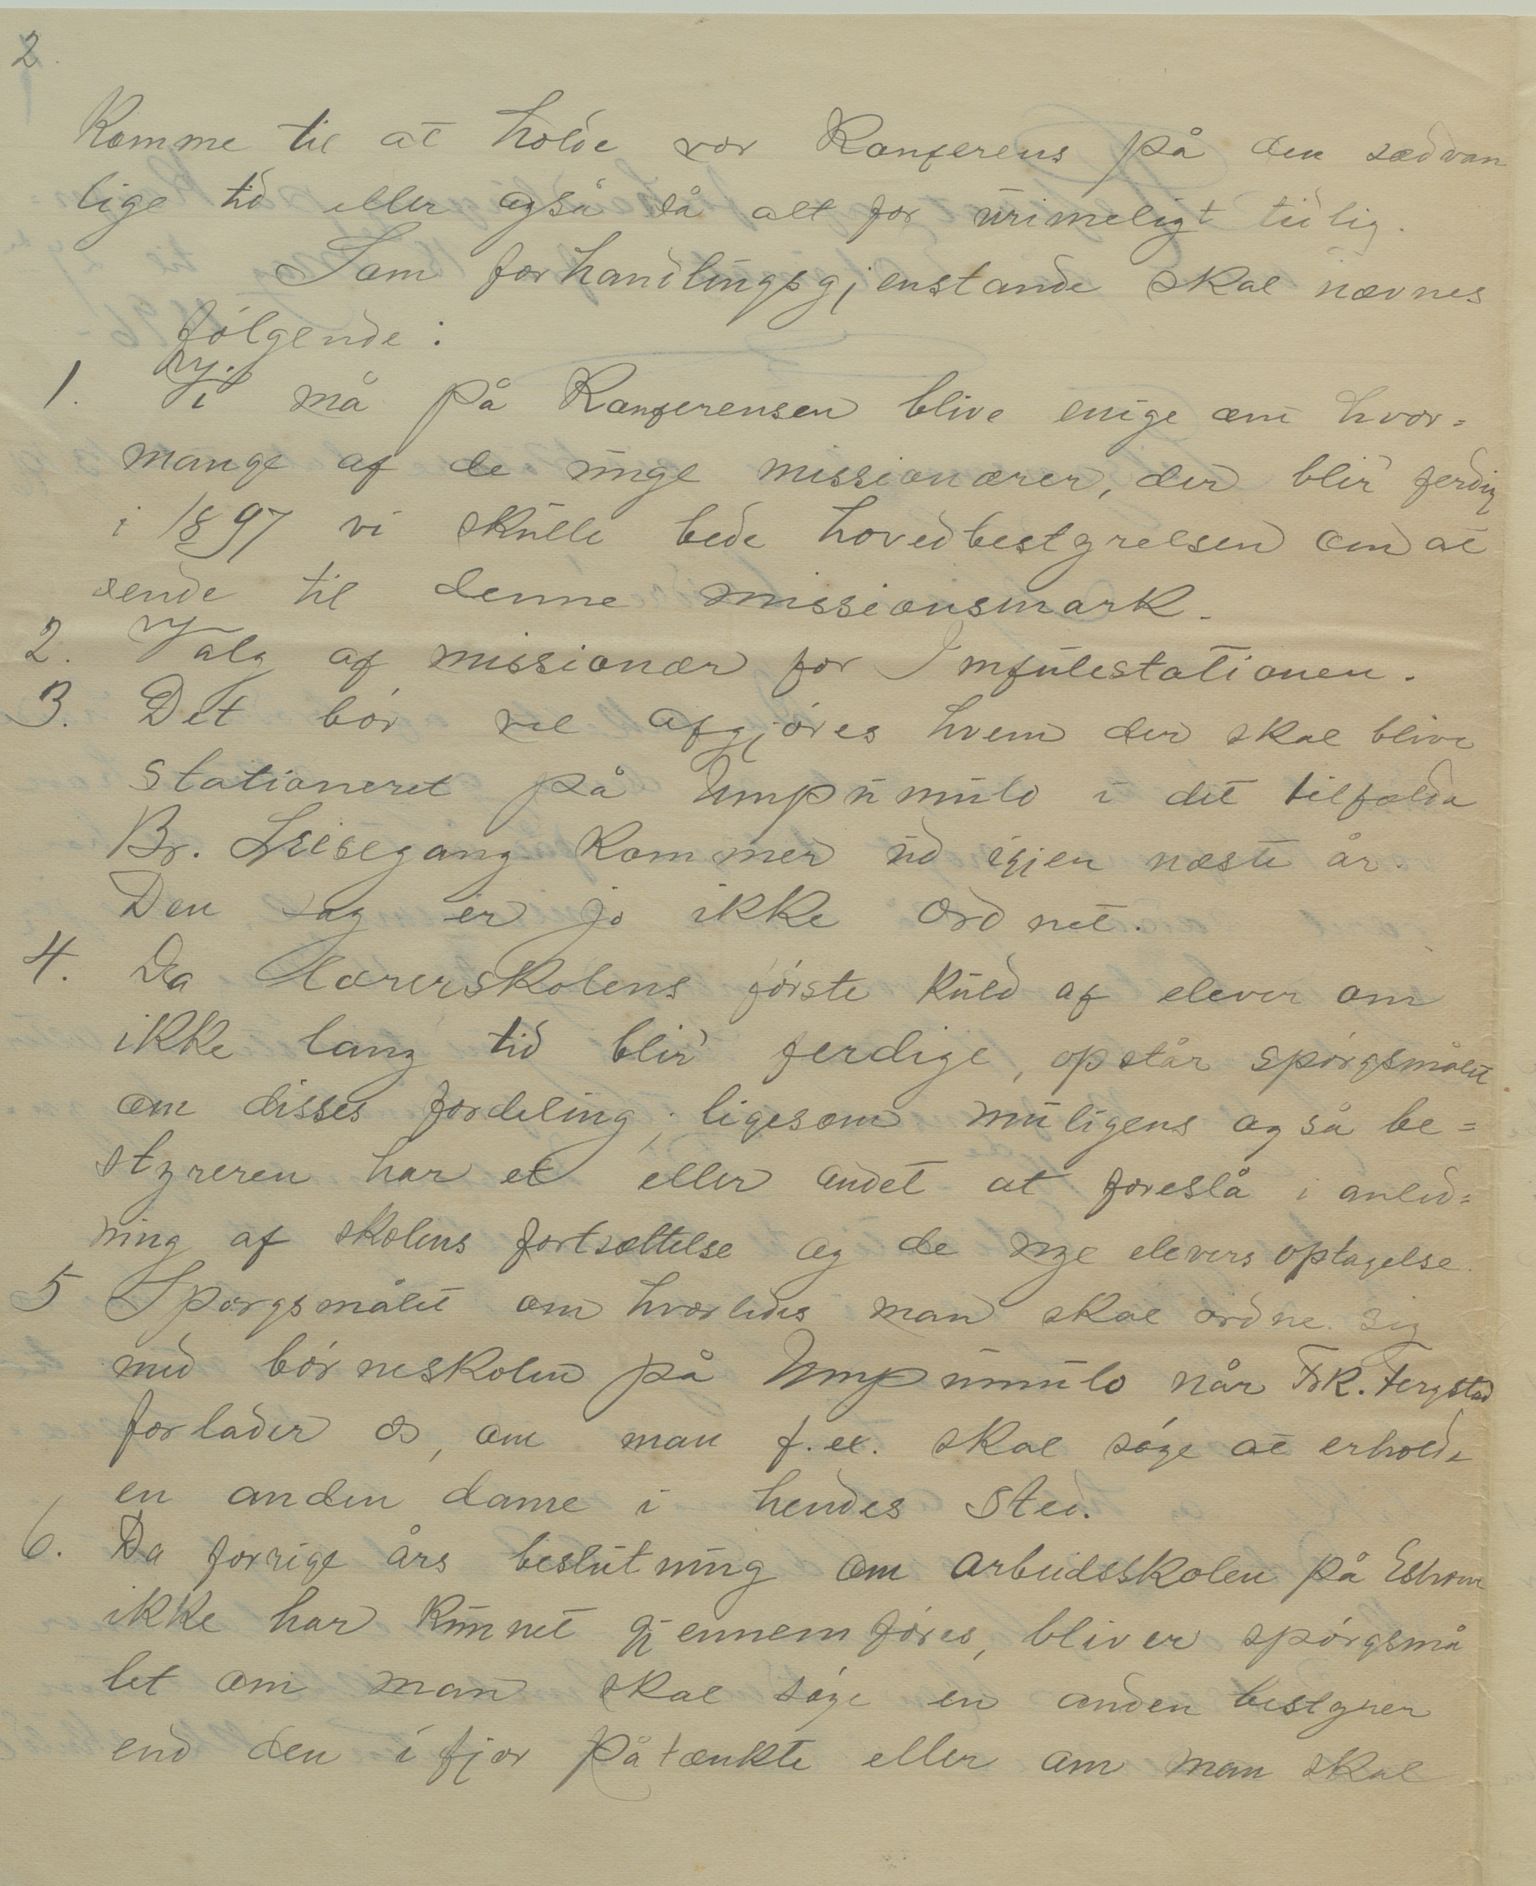 2.
Komme til at holde vor Konferens på den sædvan
lige tid eller også så alt for urimeligt tidlig.
Som forhandlingsgjenstande skal nævnes
følgende:
1. Vi må på Konferensen blive enige om hvor=
mange af de unge missionærer, der blir ferdig
i 1897 vi skulle bede hovedbestyrelsen om at
sende til denne missionsmark.
2. Valg af missionær for Imfulestationen.
3. Det bør vel afgjøres hvem der skal blive
stationeret på Umpumulo i det tilfælde
Br. Leisegang kommer ud igjen næste år.
Den sag er jo ikke ordnet.
4. Da Lærerskolens første kuld af elever om
ikke lang tid blir ferdige, opstår spørgsmålet
om disses fordeling; ligesom muligens også be=
styreren har et eller andet at foreslå i anled=
ning af skolens fortsættelse og de nye elevers optagelse.
5 Spørgsmålet om hvorledes man skal ordne sig
med børneskolen på Umpumulo når Frk. Fergstad
forlader os, om man f. ex. skal søge at erholde
en anden dame i hendes sted.
6. Da forrige års beslutning om arbeidsskolen på Eshowe
ikke har kunnet gjennemføres, bliver spørgsmå
let om man skal søge en anden bestyrer
end den i fjor påtænkte eller om man skal